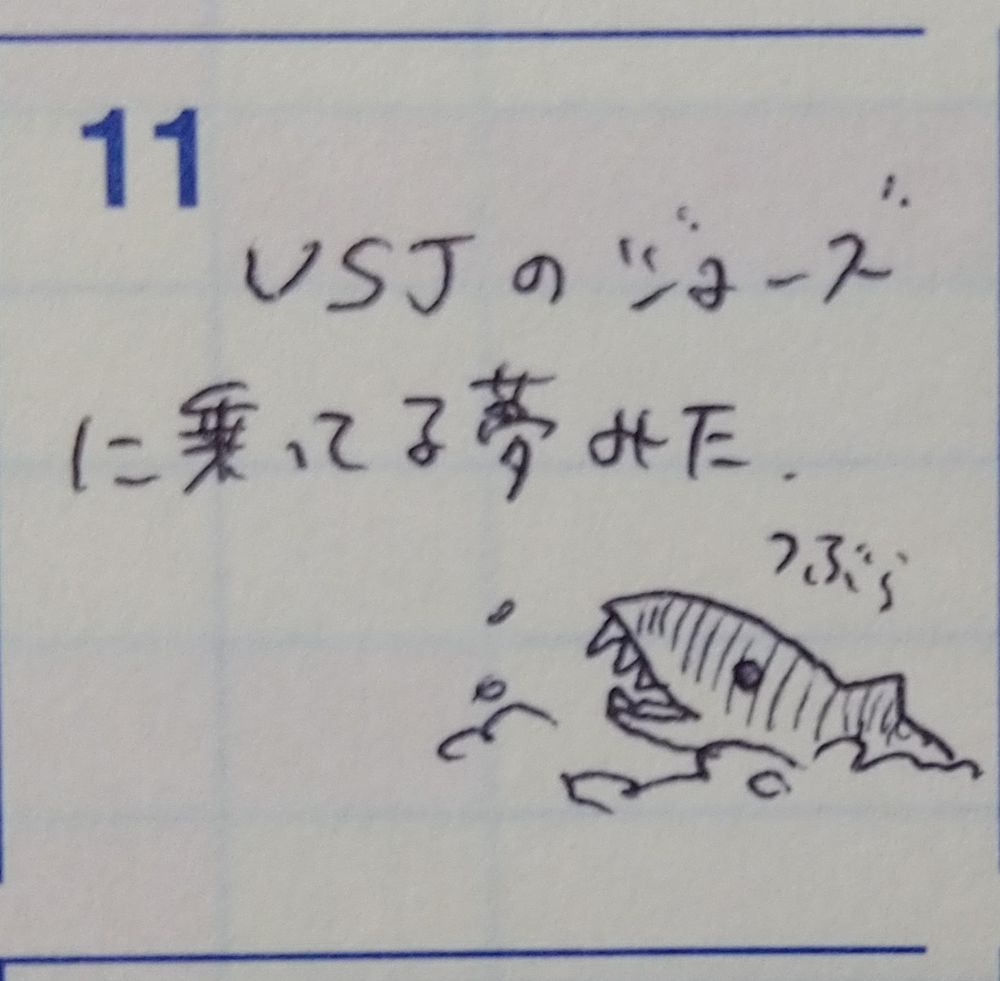 11
USJのジョーズ
に乗ってる夢みた.
つぶら